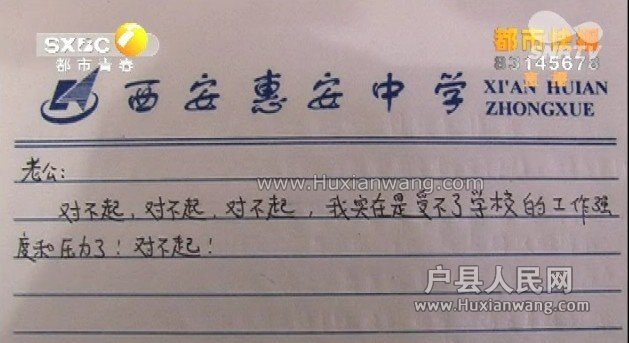 SXBC
都市青春
都市快报
83145678
直播
西安惠安中学
XI'AN HUIAN
ZHONGXUE
老公:
www.Huxianwang.com
对不起,对不起,对不起,我实在是受不了学校的工作强
度和压力了!对不起!
户县人民网
www.Huxianwang.com